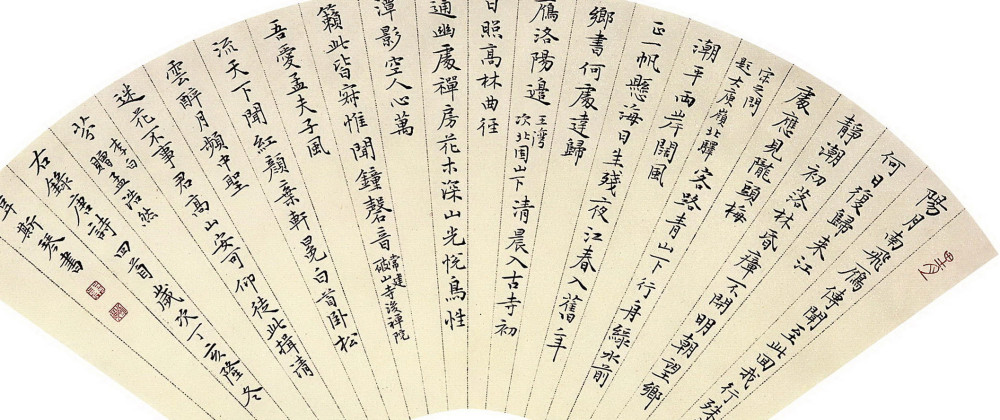 陽月南飛雁傳聞至此回我行殊
何日復歸來江
靜潮初落林昏瘴不開明朝望鄉
處應見隴頭梅
宋之問
題大庾嶺北驛
客路青山下行舟綠水前
潮平兩岸闊風
正一帆懸海日生殘夜江春入舊年
鄉書何處達歸
雁洛陽邊
王灣
次北固山下
清晨入古寺初
日照高林曲徑
通幽處禪房花木深山光悅鳥性
潭影空人心萬
籟此皆寂惟聞鐘磬音
常建
破山寺後禪院
吾愛孟夫子風
流天下聞紅顏棄軒冕白首臥松
雲醉月頻中聖
迷花不事君高山安可仰徒此揖清
芬
李白
贈孟浩然
右錄唐詩四首歲次丁亥隆冬
斯琴書